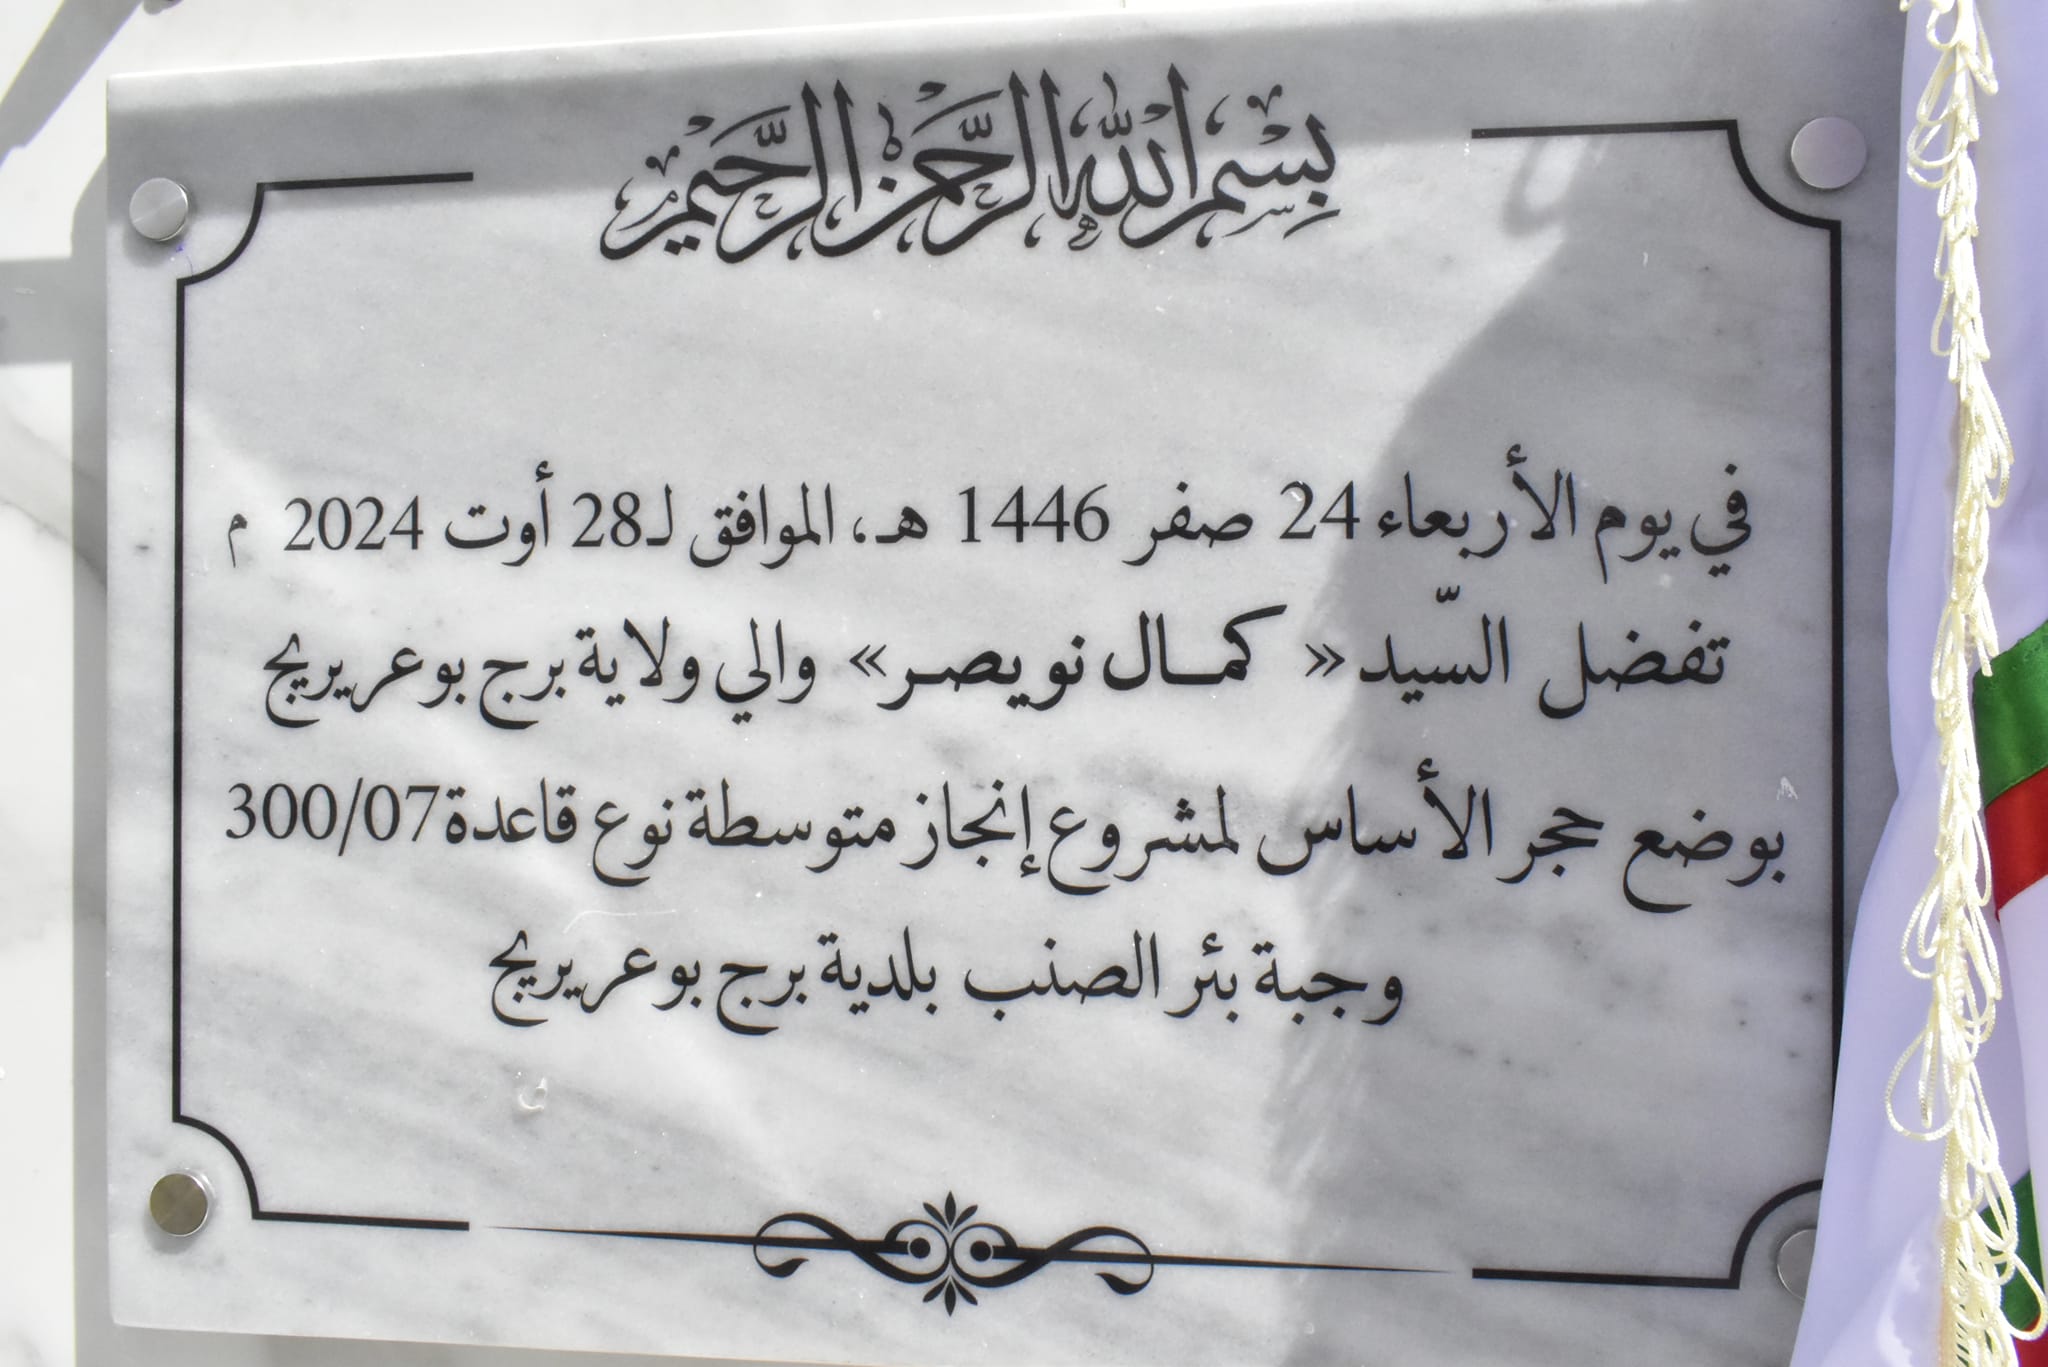 بِسْمِ اللهِ الرَّحْمٰنِ الرَّحِيْمِ
في يوم الأربعاء 24 صفر 1446 هـ، الموافق لـ28 أوت 2024 م
تفضل السّيد « كمال نويصر» والي ولاية برج بوعريريج
بوضع حجر الأساس لمشروع إنجاز متوسطة نوع قاعدة 300/07
وجبة بئر الصنب بلدية برج بوعريريج